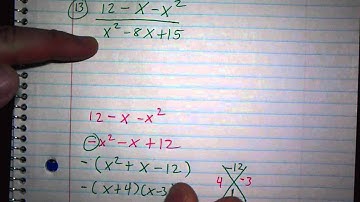 13) 12 - x - x²
x² - 8x + 15
12 - x - x²
-x² - x + 12
-(x² + x - 12)
-(x+4)(x-3
-12
4 -3
1